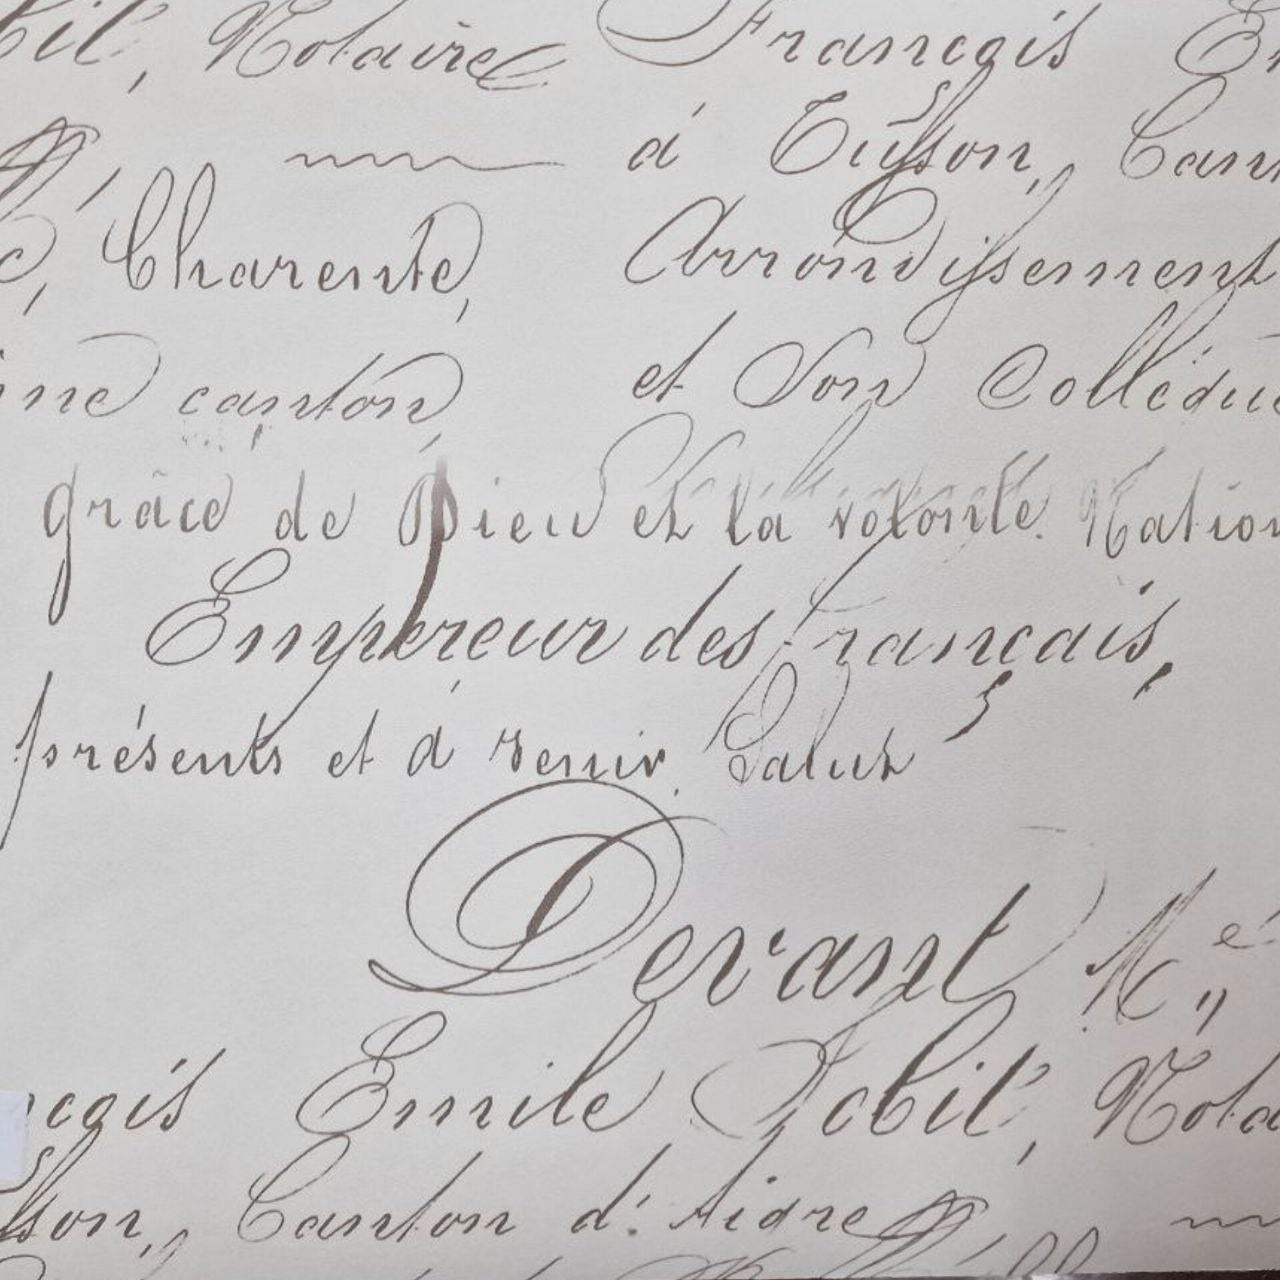 bil, Notaire François Em
à Tusson, Cant
Charente, Arrondissement
canton, et son Collègue
grâce de Dieu et la volonté Nation
Empereur des Français,
présents et à venir, Salut
Devant Me,,
nçois Emile Bobil, Nota
sson, Canton d'Aigre